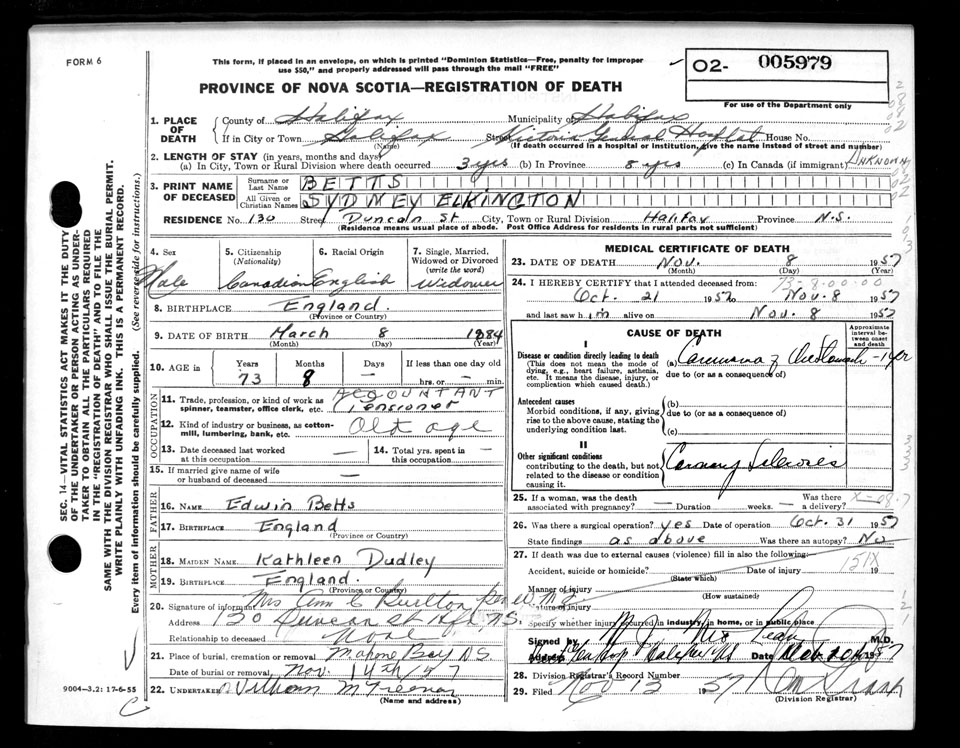 FORM 6
This form, if placed in an envelope, on which is printed "Dominion Statistics—Free, penalty for improper
use $50," and properly addressed will pass through the mail "FREE"
PROVINCE OF NOVA SCOTIA—REGISTRATION OF DEATH
02- 005979
For use of the Department only
SEC. 14—VITAL STATISTICS ACT MAKES IT THE DUTY
OF THE UNDERTAKER OR PERSON ACTING AS UNDER-
TAKER TO OBTAIN ALL THE PARTICULARS REQUIRED
IN THE "REGISTRATION OF DEATH" AND TO FILE THE
SAME WITH THE DIVISION REGISTRAR WHO SHALL ISSUE THE BURIAL PERMIT.
WRITE PLAINLY WITH UNFADING INK. THIS IS A PERMANENT RECORD.
Every item of information should be carefully supplied. (See reverse side for instructions.)
1. PLACE OF DEATH
County of Halifax Municipality of Halifax
If in City or Town Halifax Street Victoria General Hospital House No.
(Name) (If death occurred in a hospital or institution, give the name instead of street and number)
2. LENGTH OF STAY (in years, months and days)
(a) In City, Town or Rural Division where death occurred 3 yrs (b) In Province 8 yrs (c) In Canada (if immigrant) UNKNOWN
3. PRINT NAME OF DECEASED
Surname or Last Name BETTS
All Given or Christian Names SYDNEY ELKINGTON
RESIDENCE No. 130 Street Duncan St City, Town or Rural Division Halifax Province N.S.
(Residence means usual place of abode. Post Office Address for residents in rural parts not sufficient)
4. Sex Male
5. Citizenship (Nationality) Canadian
6. Racial Origin English
7. Single, Married, Widowed or Divorced (write the word) Widower
8. BIRTHPLACE England
(Province or Country)
9. DATE OF BIRTH March 8 1884
(Month) (Day) (Year)
10. AGE in Years 73 Months 8 Days — If less than one day old — hrs. or — min.
OCCUPATION
11. Trade, profession, or kind of work as spinner, teamster, office clerk, etc. ACCOUNTANT Pensioner
12. Kind of industry or business, as cotton-mill, lumbering, bank, etc. Old age
13. Date deceased last worked at this occupation —
14. Total yrs. spent in this occupation —
15. If married give name of wife or husband of deceased —
FATHER
16. NAME Edwin Betts
17. BIRTHPLACE England
(Province or Country)
MOTHER
18. MAIDEN NAME Kathleen Dudley
19. BIRTHPLACE England.
(Province or Country)
20. Signature of informant Mrs Ann C
Address 130 Duncan St Hfx, N.S.
Relationship to deceased None
21. Place of burial, cremation or removal Mahone Bay N.S
Date of burial or removal Nov. 14th/57
9004-3.2: 17-6-55
22. UNDERTAKER William M
(Name and address)
MEDICAL CERTIFICATE OF DEATH
23. DATE OF DEATH Nov. 8 1957
(Month) (Day) (Year)
24. I HEREBY CERTIFY that I attended deceased from:
Oct. 21 1957 to Nov. 8 1957
and last saw him alive on Nov. 8 1957
CAUSE OF DEATH
Approximate interval between onset and death
I
Disease or condition directly leading to death
(This does not mean the mode of dying, e.g., heart failure, asthenia, etc. It means the disease, injury, or complication which caused death.)
(a) Carcinoma of the Stomach - 1 yr
due to (or as a consequence of)
Antecedent causes
Morbid conditions, if any, giving rise to the above cause, stating the underlying condition last.
(b)
due to (or as a consequence of)
(c)
II
Other significant conditions
contributing to the death, but not related to the disease or condition causing it.
Coronary Sclerosis
25. If a woman, was the death associated with pregnancy? — Duration — weeks. Was there a delivery?
26. Was there a surgical operation? yes Date of operation Oct. 31 1957
State findings as above Was there an autopsy? No
27. If death was due to external causes (violence) fill in also the following:
Accident, suicide or homicide? Date of injury 19
151X
(State which)
Manner of injury
(How sustained)
Nature of injury
Specify whether injury occurred in industry, in home, or in public place
Signed by M.D.
Address Halifax NS Date 1957
28. Division Registrar's Record Number
29. Filed Nov 13 1957
(Division Registrar)